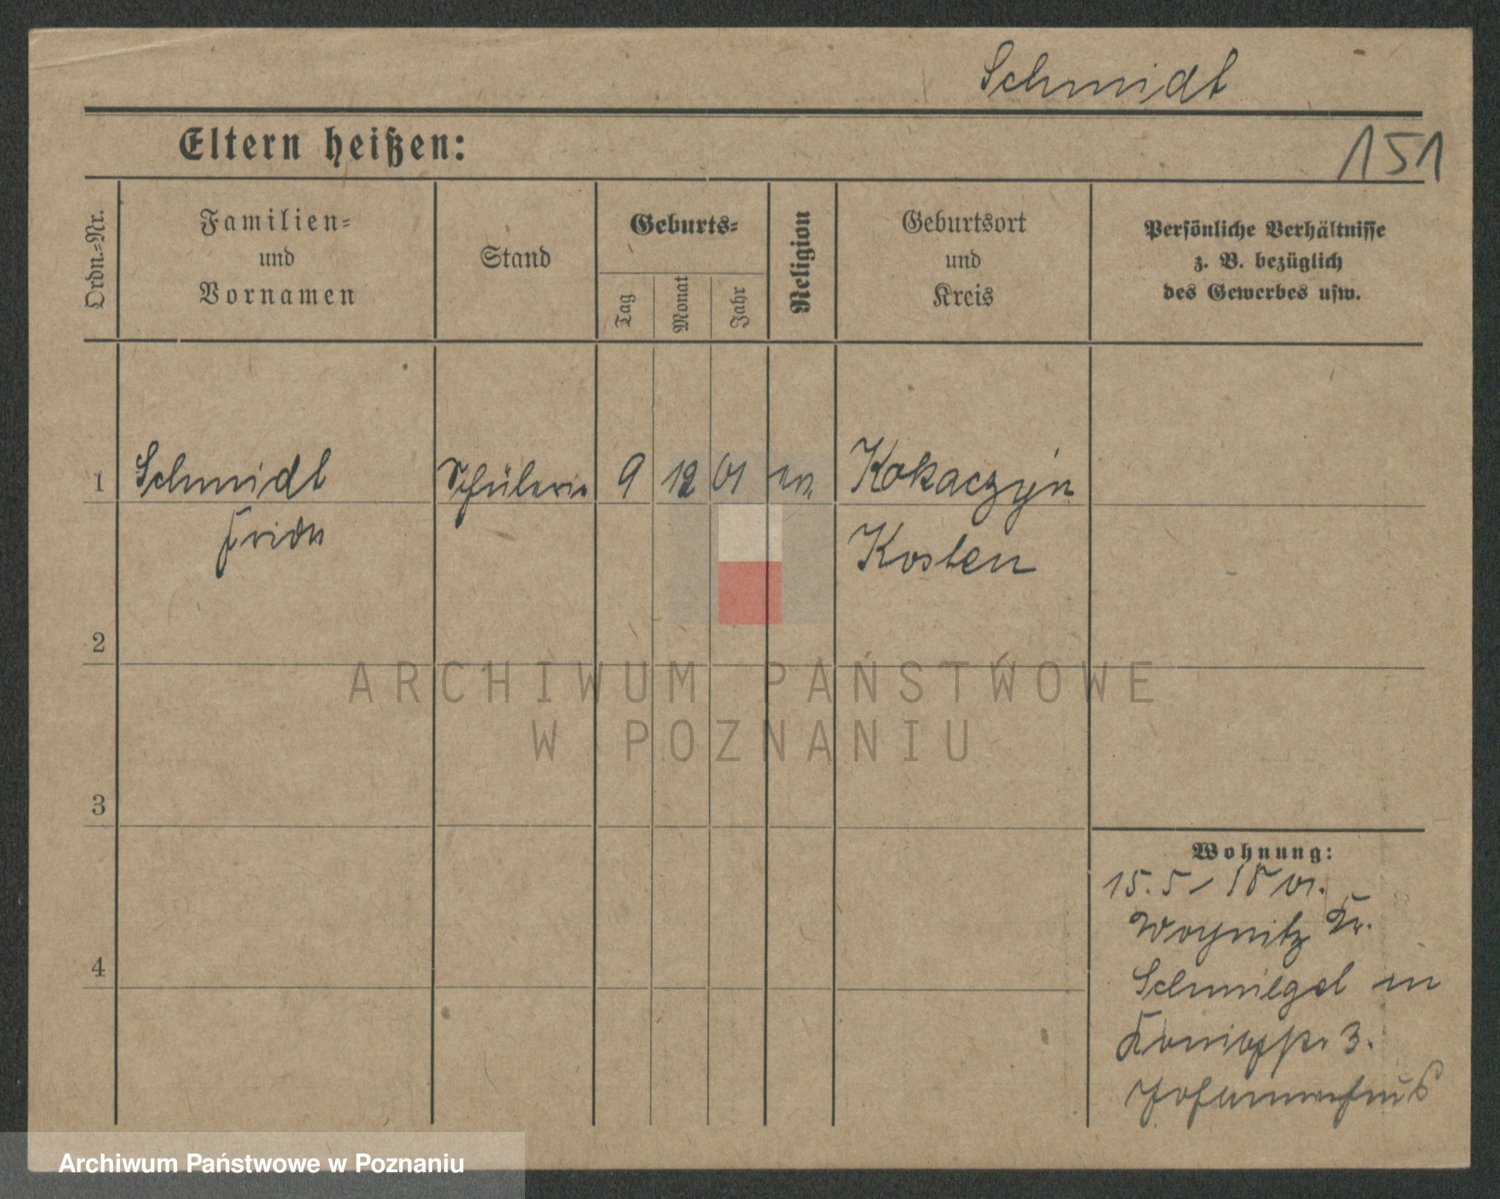 Schmidt
Eltern heißen:
151
Ordn.-Nr.
Familien-
und
Vornamen
Stand
Geburts-
Tag
Monat
Jahr
Religion
Geburtsort
und
Kreis
Persönliche Verhältnisse
z. B. bezüglich
des Gewerbes usw.
1 Schmidt Schülerin 9 12 01 ev. Kokaczyn
Frida Kosten
2
3
4
Wohnung:
15.5 - 18 VI.
Woynitz Kr.
Schmiegel in
3.
ARCHIWUM PAŃSTWOWE
W POZNANIU
Archiwum Państwowe w Poznaniu